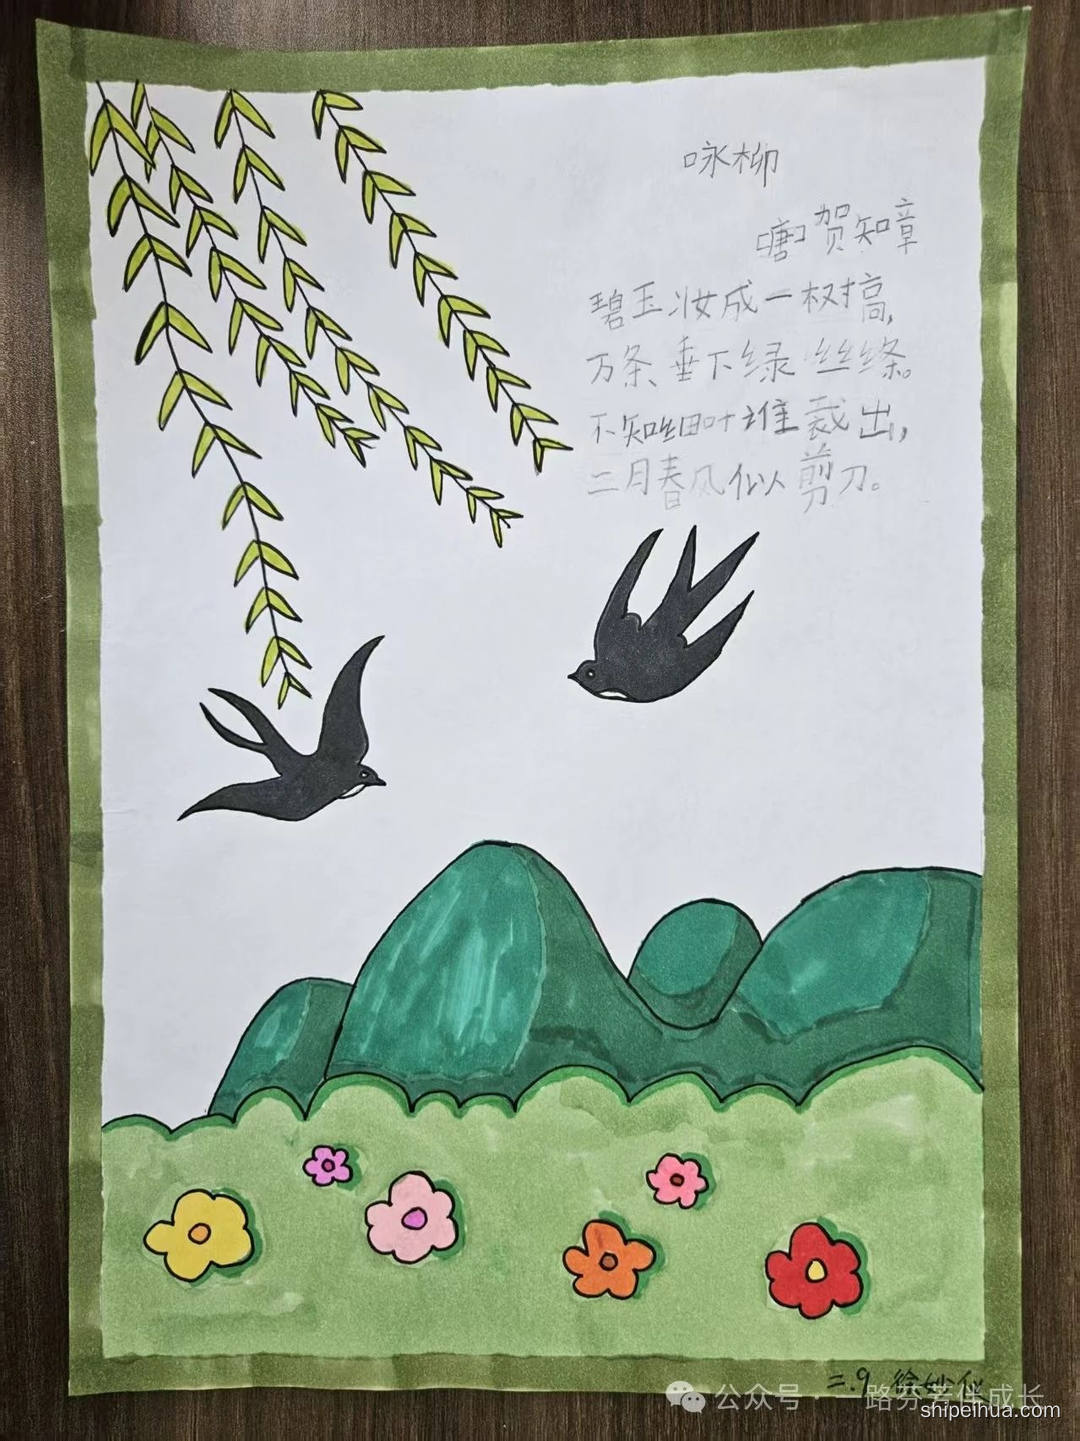 咏柳
[唐]贺知章
碧玉妆成一树高,
万条垂下绿丝绦。
不知细叶谁裁出,
二月春风似剪刀。
二.9 徐妙
公众号·一路芬芳伴成长
shipeihua.com